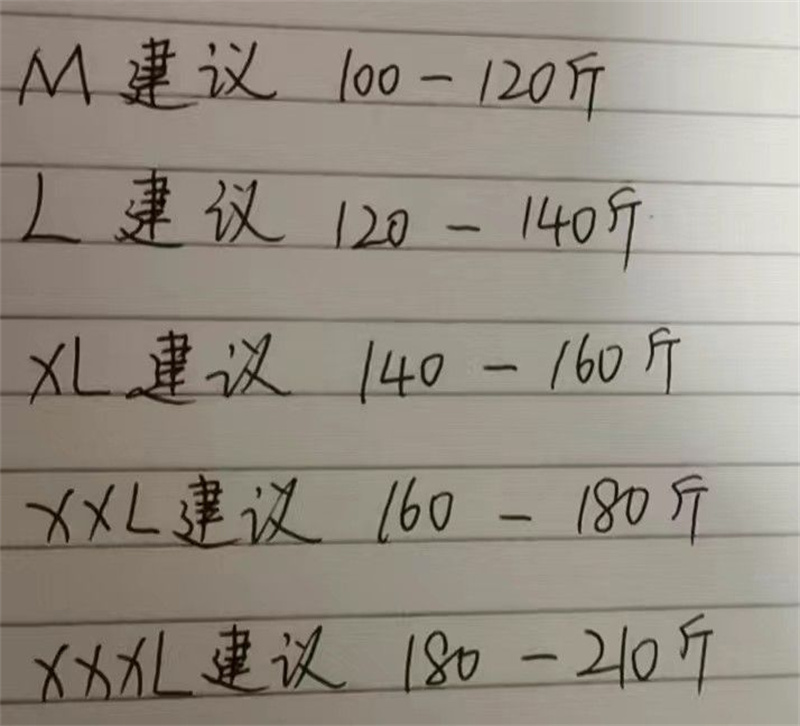 M 建议 100-120斤
L 建议 120-140斤
XL 建议 140-160斤
XXL 建议 160-180斤
XXXL 建议 180-210斤